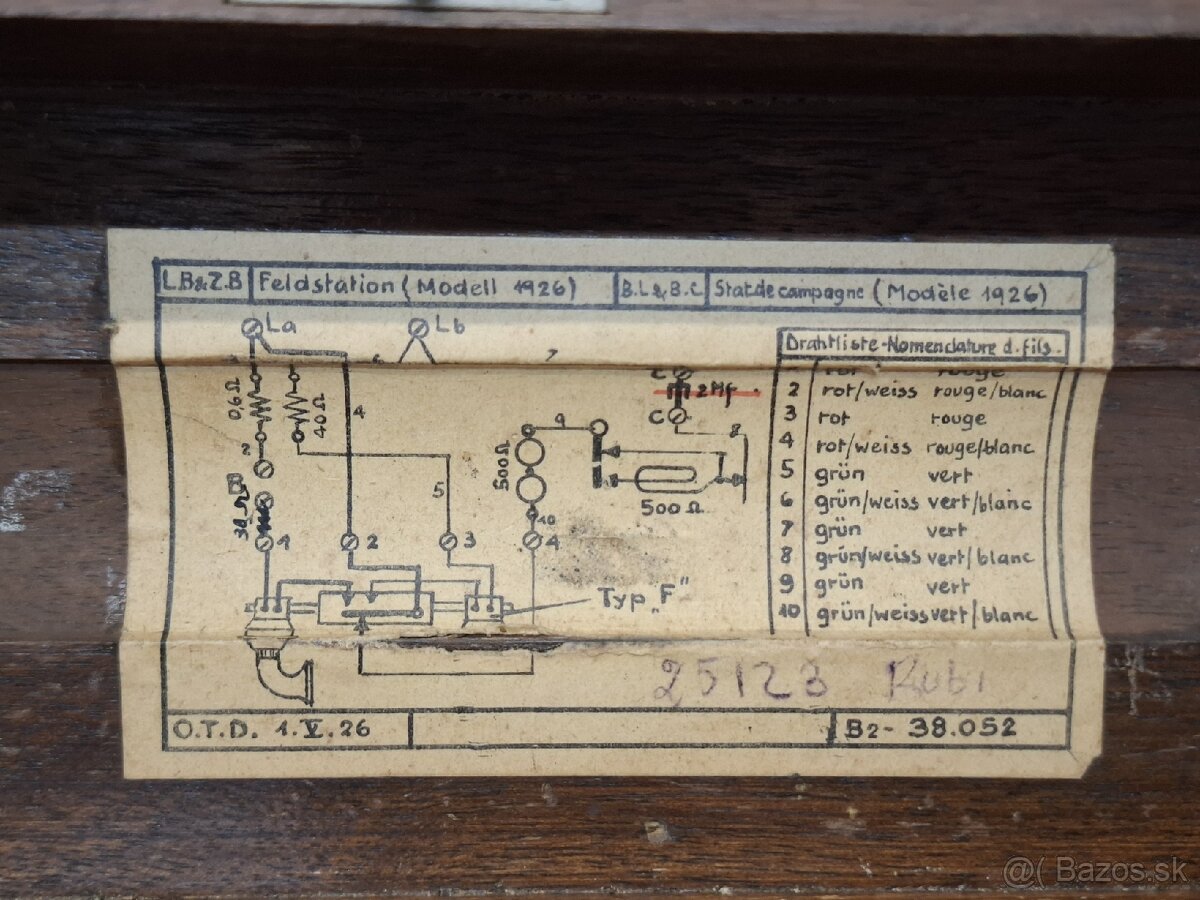 L.B&Z.B Feldstation (Modell 1926) B.L&B.C Stat.de campagne (Modèle 1926)
La Lb
Drahtliste-Nomenclature d. fils.
rot rouge
2 rot/weiss rouge/blanc
3 rot rouge
4 rot/weiss rouge/blanc
5 grün vert
6 grün/weiss vert/blanc
7 grün vert
8 grün/weiss vert/blanc
9 grün vert
10 grün/weiss vert/blanc
6 7
0,6Ω
40Ω
4
2
5
C 2 Mf.
C
8
9
500Ω
500Ω
10
1 2 3 4
Typ „F"
25123
O.T.D. 1.V.26 B2-38.052
@( Bazos.sk